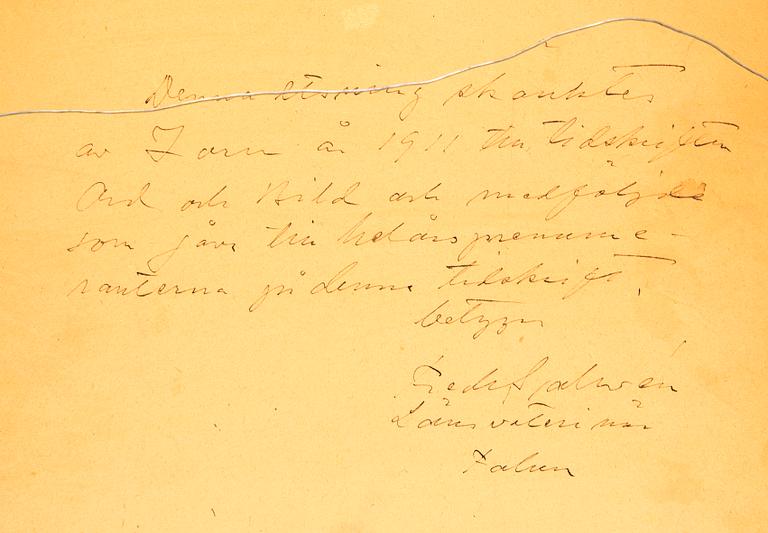 Denna etsning skänktes
av Zorn år 1911 till tidskriften
Ord och Bild och medföljde
som gåva till helårsprenume-
ranterna på denna tidskrift,
betygar
Länsveterinär
Falun